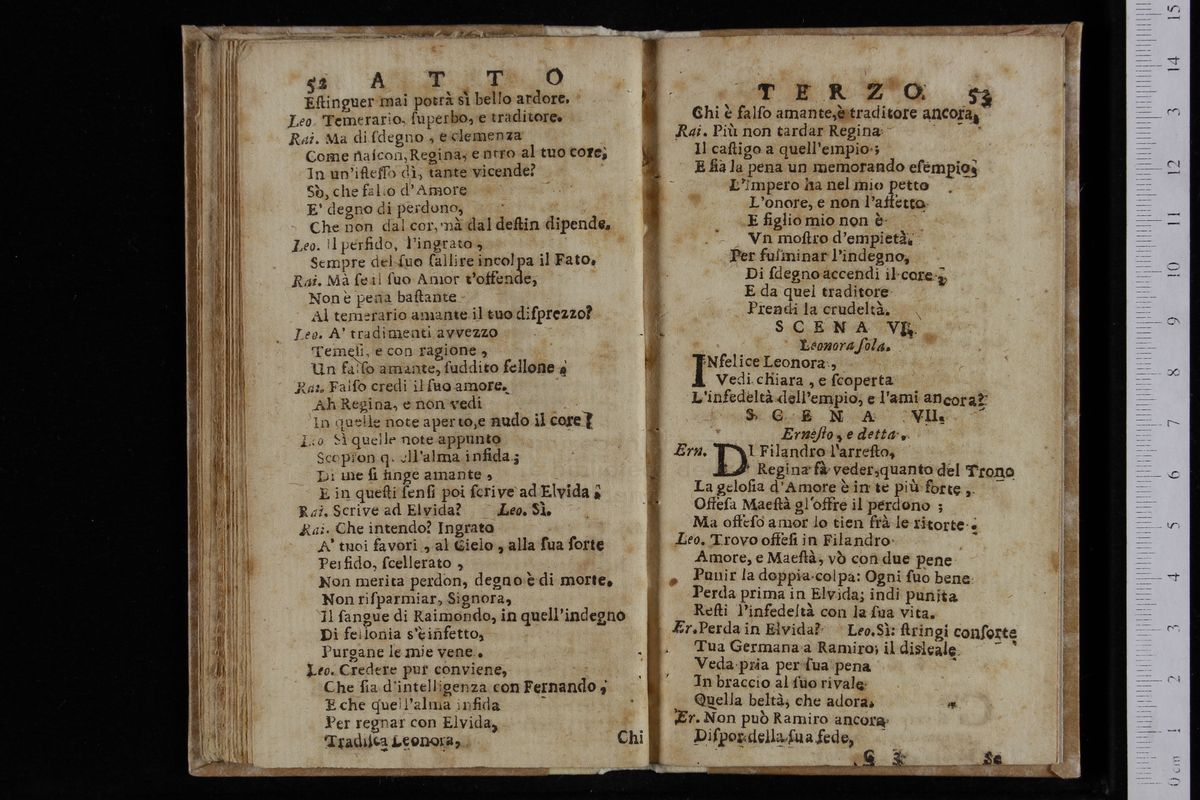 52 A T T O
Eſtinguer mai potrà sì bello ardore.
Leo Temerario, ſuperbo, e traditore.
Rai. Ma di ſdegno, e clemenza
Come naſcon, Regina, entro al tuo core;
In un'iſteſſo dì, tante vicende?
Sò, che fallo d'Amore
E' degno di perdono,
Che non dal cor, mà dal deſtin dipende.
Leo. Il perfido, l'ingrato,
Sempre del ſuo fallire incolpa il Fato.
Rai. Mà ſe il ſuo Amor t'offende,
Non è pena baſtante
Al temerario amante il tuo diſprezzo?
Leo. A' tradimenti avvezzo
Temeli, e con ragione,
Un falſo amante, ſuddito fellone;
Rai. Falſo credi il ſuo amore.
Ah Regina, e non vedi
In quelle note aperto, e nudo il core?
Leo Sì quelle note appunto
Scopron quell'alma infida;
Di me ſi finge amante,
E in queſti ſenſi poi ſcrive ad Elvida;
Rai. Scrive ad Elvida? Leo. Sì.
Rai. Che intendo? Ingrato
A' tuoi favori, al Cielo, alla ſua ſorte
Perfido, ſcellerato,
Non merita perdon, degno è di morte.
Non riſparmiar, Signora,
Il ſangue di Raimondo, in quell'indegno
Di fellonia s'è infetto,
Purgane le mie vene.
Leo. Credere pur conviene,
Che ſia d'intelligenza con Fernando;
E che quell'alma infida
Per regnar con Elvida,
Tradiſca Leonora,
Chi
TERZO. 53
Chi è falſo amante, è traditore ancora.
Rai. Più non tardar Regina
Il caſtigo a quell'empio;
E ſia la pena un memorando eſempio;
L'Impero ha nel mio petto
L'onore, e non l'affetto
E figlio mio non è
Vn moſtro d'empietà.
Per fulminar l'indegno,
Di ſdegno accendi il core;
E da quel traditore
Prendi la crudeltà.
SCENA VI.
Leonora ſola.
INfelice Leonora,
Vedi chiara, e ſcoperta
L'infedeltà dell'empio, e l'ami ancora?
SCENA VII.
Erneſto, e detta.
Ern. DI Filandro l'arreſto,
Regina fà veder, quanto del Trono
La geloſia d'Amore è in te più forte,
Offeſa Maeſtà gl'offre il perdono;
Ma offeſo amor lo tien frà le ritorte.
Leo. Trovo offeſi in Filandro
Amore, e Maeſtà, vò con due pene
Punir la doppia colpa: Ogni ſuo bene
Perda prima in Elvida; indi punita
Reſti l'infedeltà con la ſua vita.
Er. Perda in Elvida? Leo. Sì: ſtringi conſorte
Tua Germana a Ramiro; il disleale
Veda pria per ſua pena
In braccio al ſuo rivale
Quella beltà, che adora.
Er. Non può Ramiro ancora
Diſpor della ſua fede,
G 3 Se